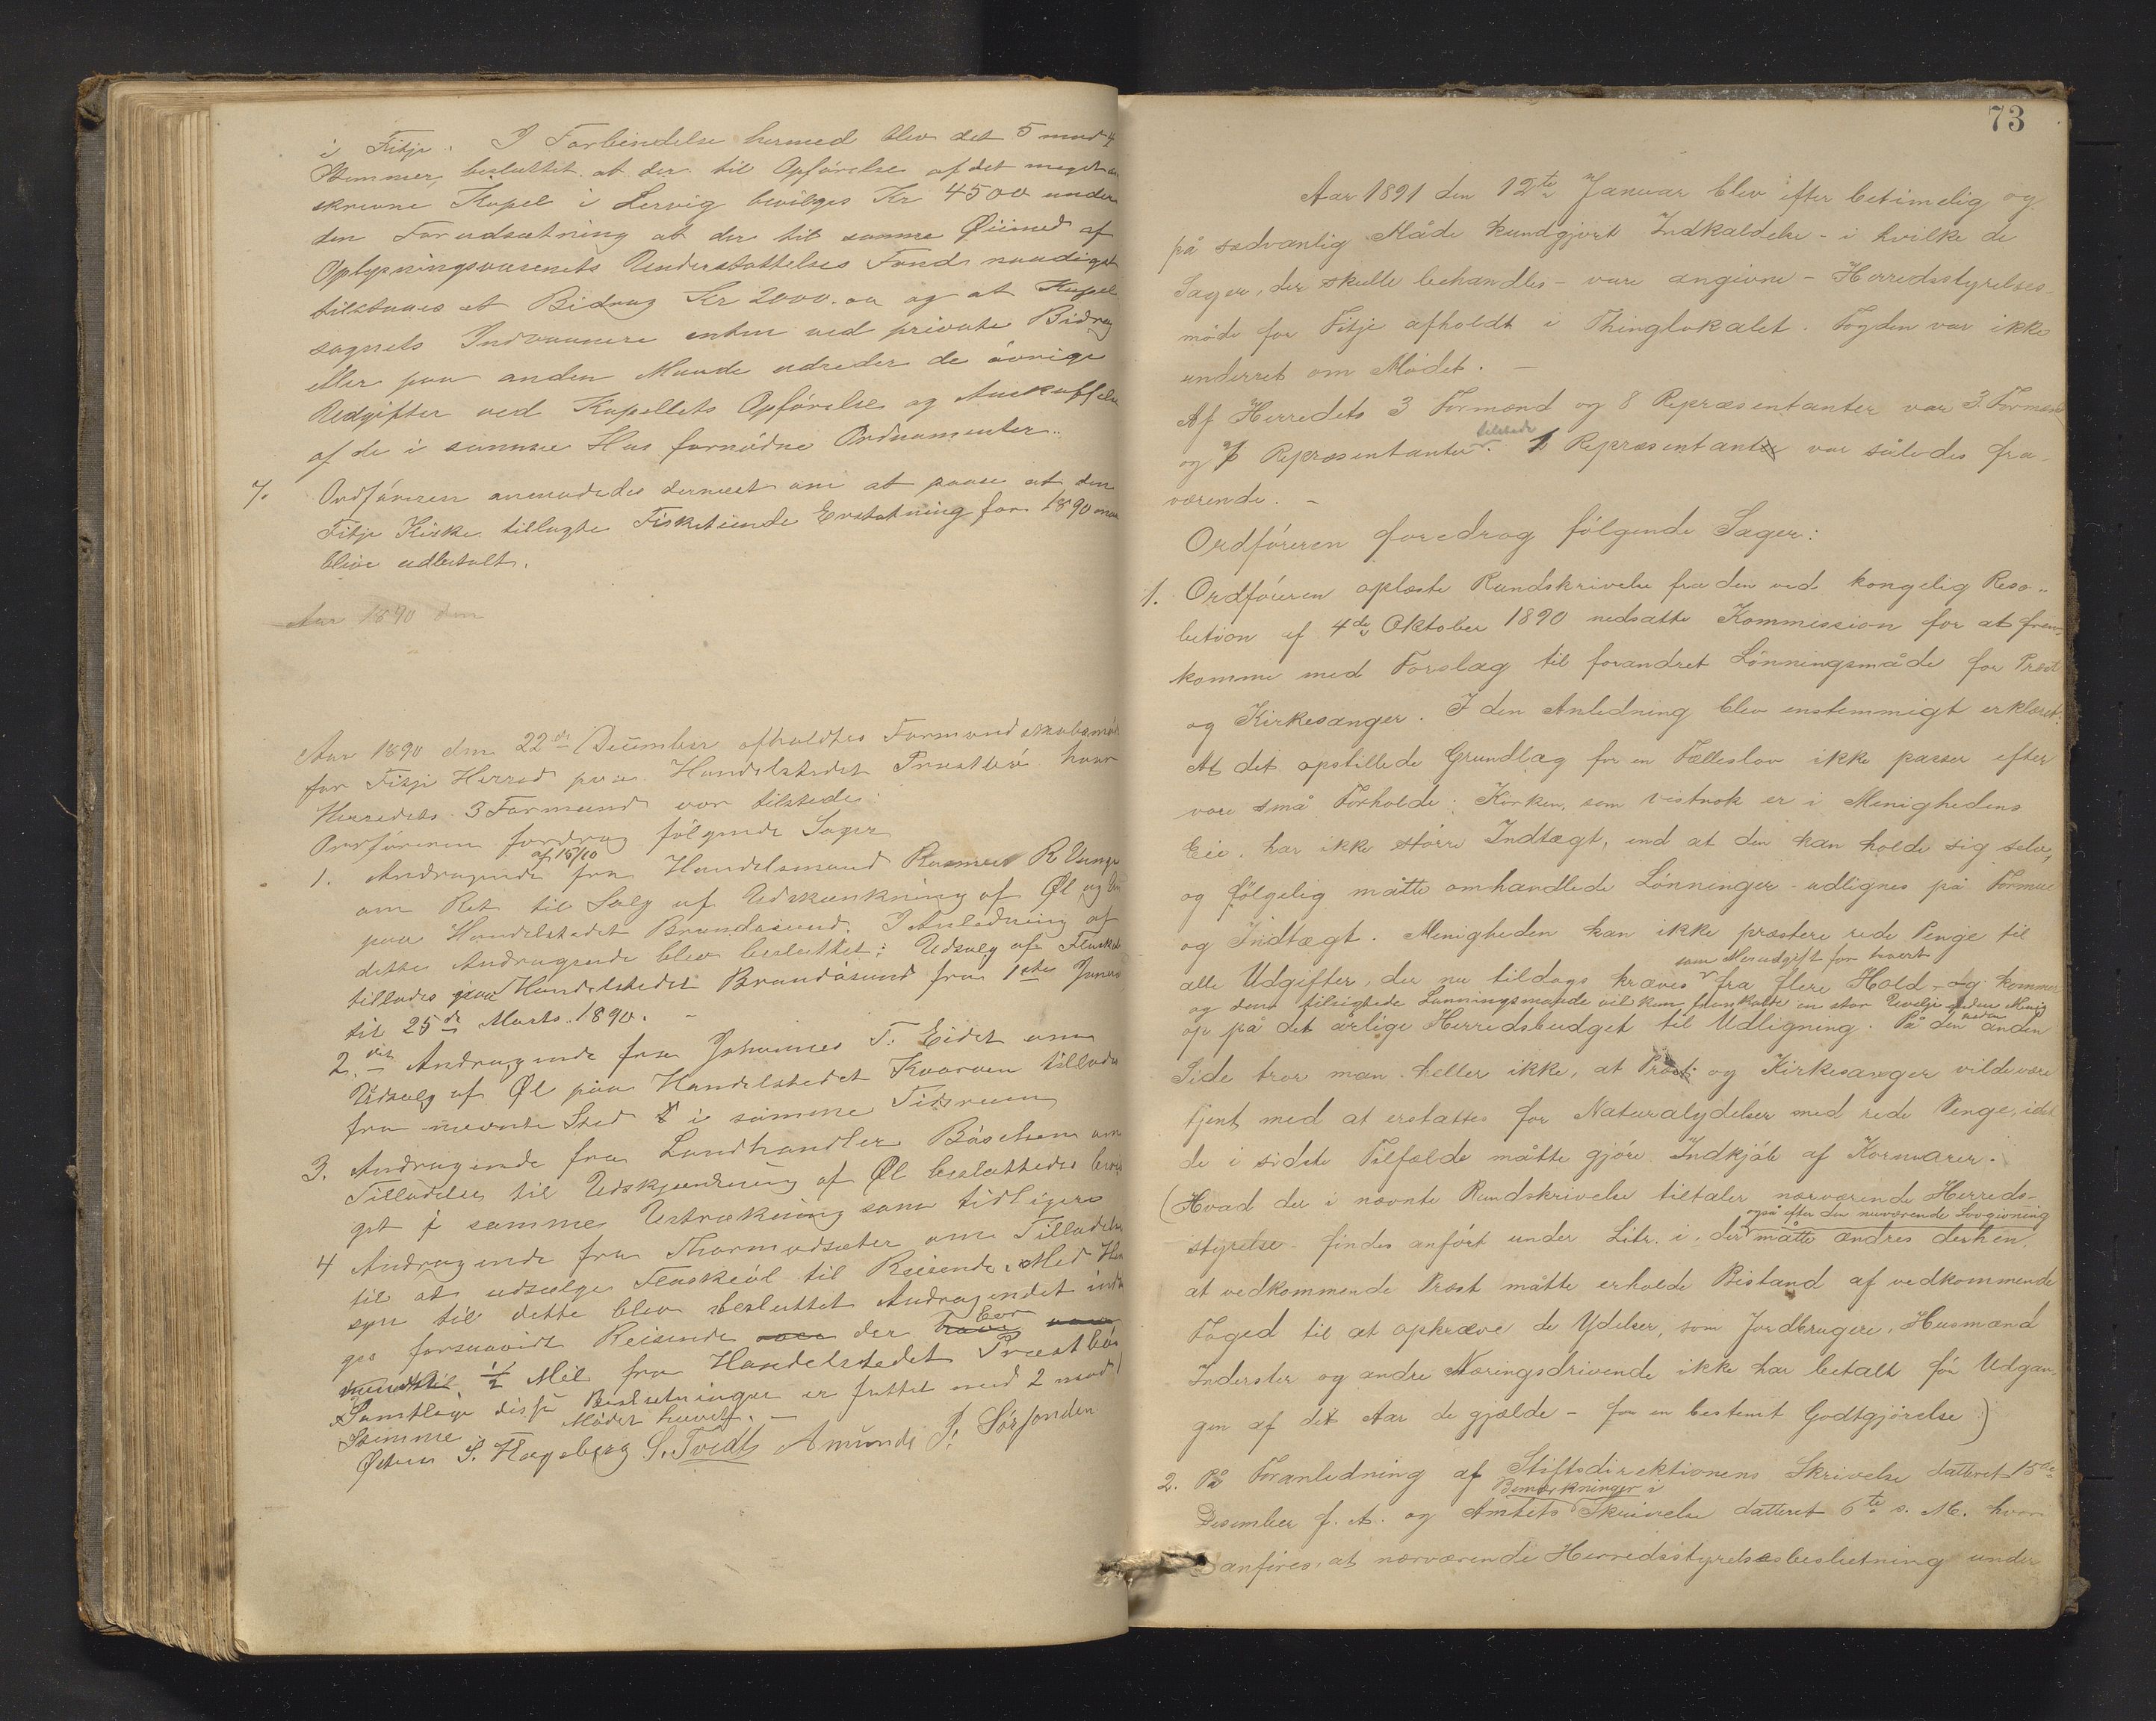 i Fitje. I Forbindelse hermed blev det 5 mod 4
Stemmer, besluttet at der til Opförelse af det meget
skrevne Kapel i Lervig bevilges Kr 4500 under
den Forudsætning at der til samme Öiemed af
Oplysningsvæsenets Understøttelses Fond naadigst
tilstaaes et Bidrag Kr 2000.00 og at Kapel
sognets Indvaanere enten ved private Bidrag
eller paa anden Maade udreder de øvrige
Udgifter ved Kapellets Opförelse og Anskaffelse
af de i samme Hus fornödne Ordnamenter.
7. Ordföreren anmodedes dernæst om at paase at den
Fitje Kirke tillagte Fisketiende Erstatning for 1890 maa
blive udbetalt.
Aar 1890 den
Aar 1890 den 22de December afholdtes Formandskabsmöde
for Fitje Herred paa Handelstedet Præstbö hvor
Herredets 3 Formænd var tilstede.
Ordföreren fordrag fölgende Sager
1. Andragende af 16/10 fra Handelsmand Rasmus R
om Ret til Salg af Udskænkning af Øl og
paa Handelstedet Brandasund. I Anledning af
dette Andragende blev besluttet: Udsalg af
tillades paa Handelstedet Brandåsund fra 1ste Januar
til 25de Marts 1890. -
2. Andragende fra Johannes T. Eidet om
Udsalg af Øl paa Handelstedet Kvarven tillades
fra nævnte Sted i samme Tidsrum
3. Andragende fra Landhandler Bösehen om
Tilladelse til Udskjænkning af Øl besluttedes bevil
get i samme Udstrækning som tidligere
4 Andragende fra Thormodsæter om Tilladelse
til at udsælge Flaskeöl til Reisende. Med Hen
syn til dette blev besluttet Andragendet ind
ges forsaavidt Reisende der bor
mindst 1/2 Mil fra Handelstedet Præstbö
Samtlige disse Beslutninger er fattet med 2 mod 1
Stemme. Mödet hævet. -
Östen S. Hageberg S. Tvedt Amunds J. Sörfonden
73
Aar 1891 den 12te Januar blev efter betimelig og
på sedvanlig Måde kundgjort Indkaldelse - i hvilke de
Sager, der skulle behandles - vare angivne - Herredsstyrelses-
möde for Fitje afholdt i Thinglokalet. Fogden var ikke
underret om Mödet. -
Af Herredets 3 Formænd og 8 Repræsentanter var 3 Formænd
og 7 Repræsentanter tilstede. 1 Repræsentant var således fra-
værende. -
Ordföreren foredrog fölgende Sager:
1. Ordföreren oplæste Rundskrivelse fra den ved kongelig Reso-
lution af 4de Oktober 1890 nedsatte Kommission for at frem-
komme med Forslag til forandret Lönningsmåde for Præst
og Kirkesanger. I den Anledning blev enstemmigt erklæret:
At det opstillede Grundlag for en Fælleslov ikke passer efter
vore små Forholde; Kirken, som vistnok er i Menighedens
Eie, har ikke större Indtægt, end at den kan holde sig selv,
og fölgelig måtte omhandlede Lönninger udlignes på Formue
og Indtægt. Menigheden kan ikke præstere rede Penge til
alle Udgifter, der nu tildags kræves som Merudgift for hvert fra flere Hold - og kommer
og den tilsigtede Lønningsmaade vil kun fremkalde en stor Uvilje inden Menig heden
op på det årlige Herredsbudget til Udligning. På den anden
Side tror man heller ikke, at Præst og Kirkesanger vilde være
tjent med at erstattes for Naturalydelser med rede Penge, idet
de i sidste Tilfælde måtte gjöre Indkjöb af Kornvarer.
(Hvad der i nævnte Rundskrivelse tiltaler nærværende Herreds-
styrelse findes anfört under Litr. i, der også efter den nuværende Lovgivning måtte ændres derhen,
at vedkommende Præst måtte erholde Bistand af vedkommende
Foged til at opkræve de Ydelser, som Jordbrugere, Husmænd
Inderster og andre Næringsdrivende ikke har betalt för Udgan-
gen af det Aar de gjælde - for en bestemt Godtgjörelse)
2. På Foranledning af Stiftsdirektionens Skrivelse datteret 15de
Desember f. A. og Bemærkninger i Amtets Skrivelse datteret 6te s. M. hvori
anföres, at nærværende Herredsstyrelsesbeslutning under